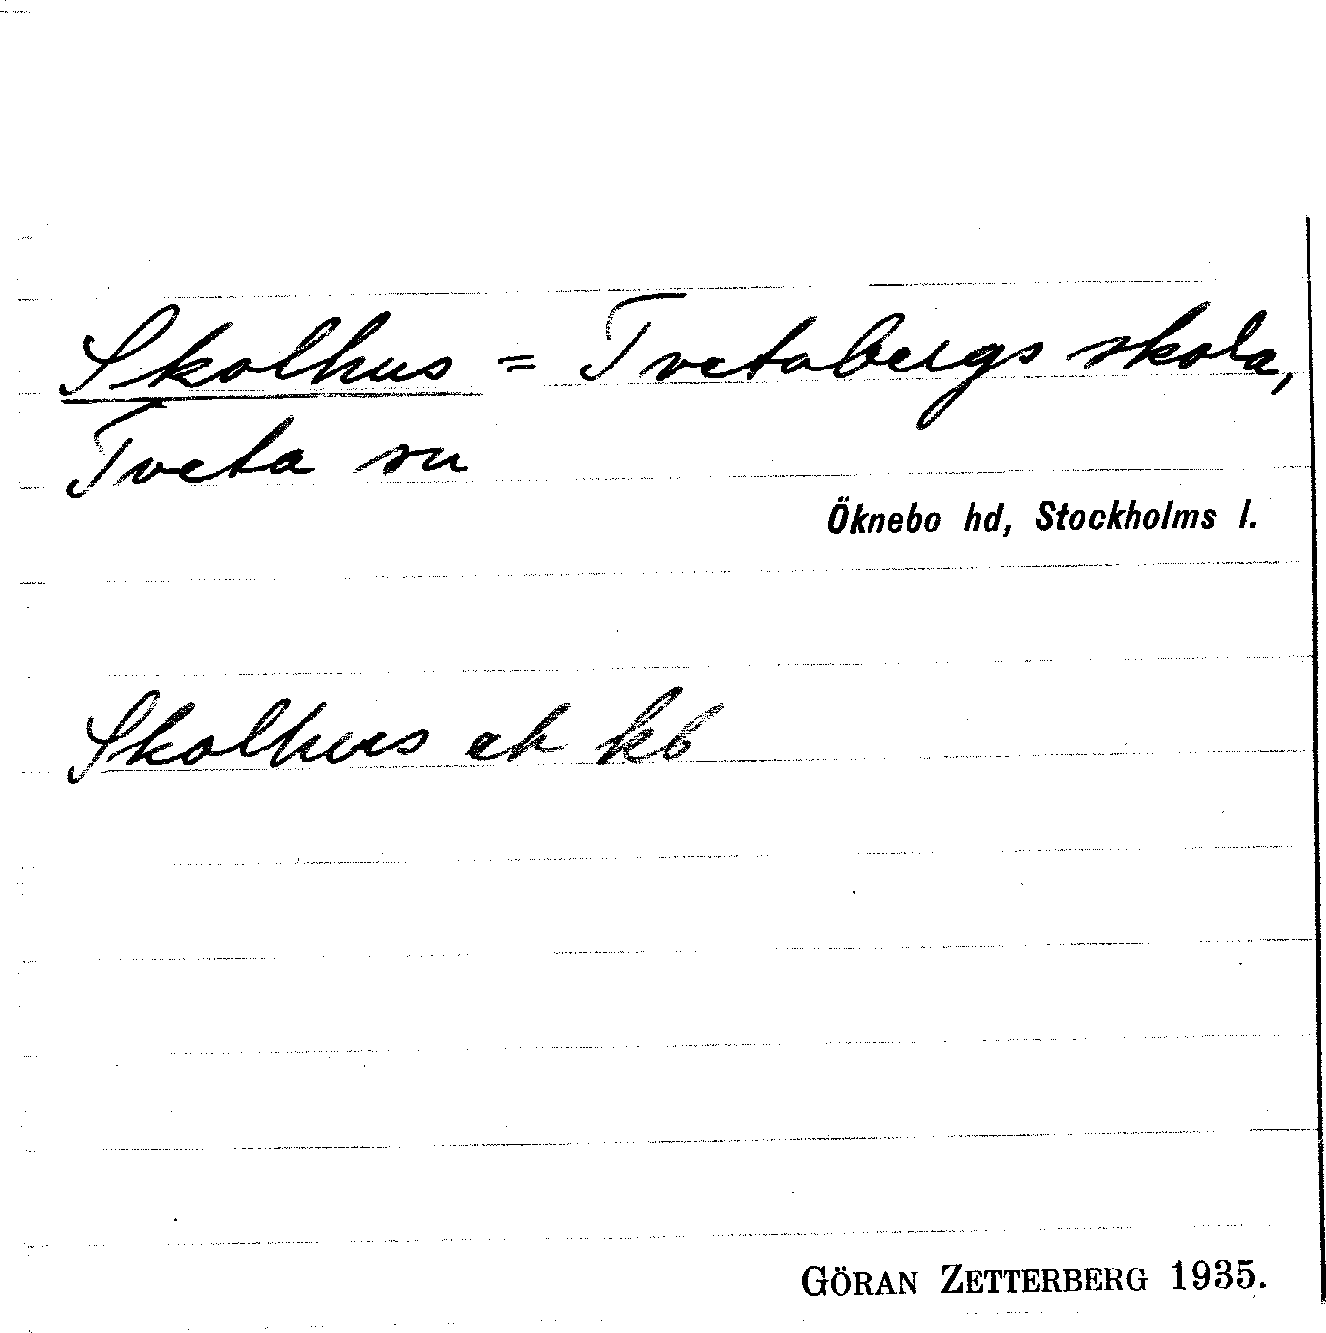 Skolhus = Tvetabergs skola,
Tveta sn
Öknebo hd, Stockholms l.
Skolhus ek kb
GÖRAN ZETTERBERG 1935.